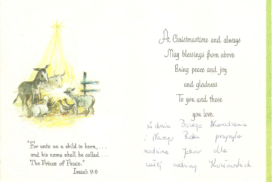 For unto us a child is born,....
and his name shall be called....
The Prince of Peace."
Isaiah 9:6
At Christmastime and always
May blessings from above
Bring peace and joy
and gladness
To you and those
you love.
z okazji Bożego Narodzenia
i Nowego Roku
rodzina
całej rodziny